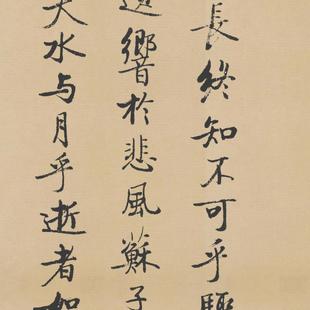 長終知不可乎驟
遺響於悲風蘇子
夫水与月乎逝者如